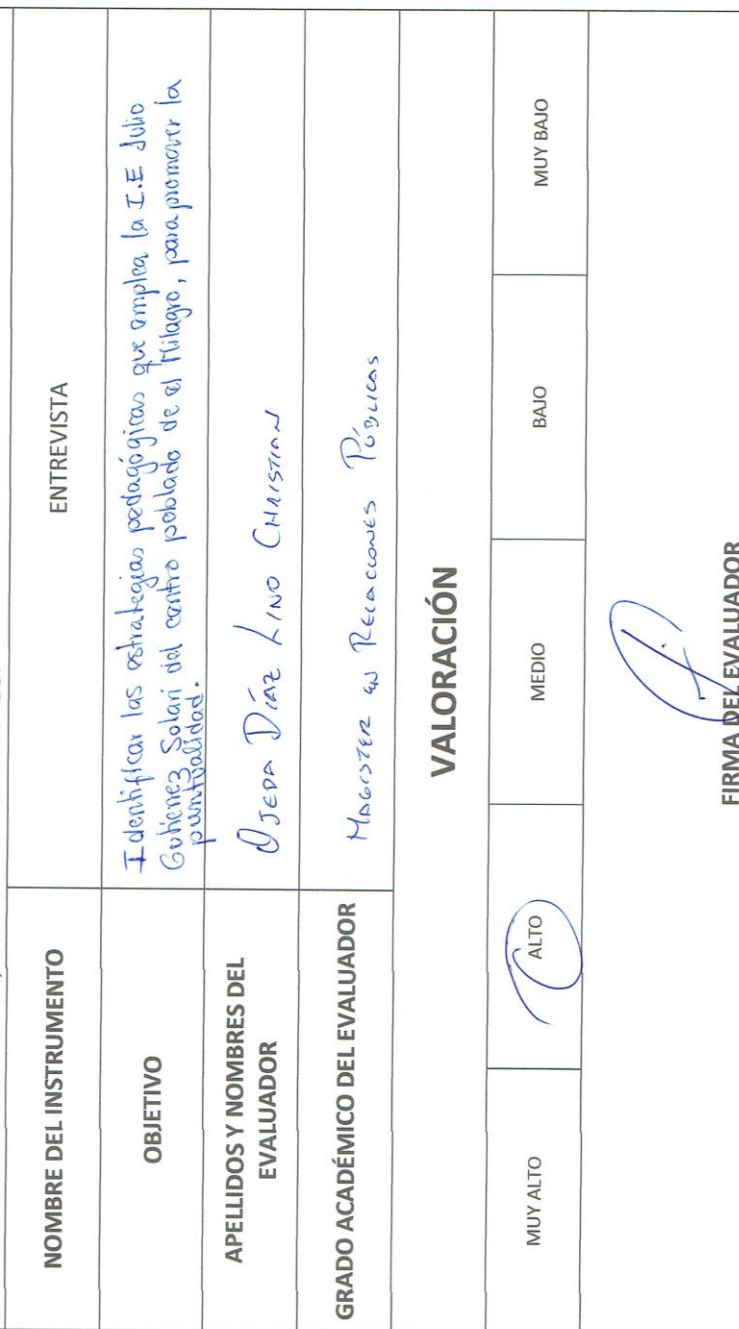 NOMBRE DEL INSTRUMENTO
ENTREVISTA
OBJETIVO
Identificar las estrategias pedagógicas que emplea la I.E Julio
Gutierrez Solari del centro poblado de el Milagro, para promover la
puntualidad.
APELLIDOS Y NOMBRES DEL
EVALUADOR
OJEDA DÍAZ LINO CHRISTIAN
GRADO ACADÉMICO DEL EVALUADOR
MAGISTER EN RELACIONES PÚBLICAS
VALORACIÓN
MUY ALTO
ALTO
MEDIO
BAJO
MUY BAJO
FIRMA DEL EVALUADOR